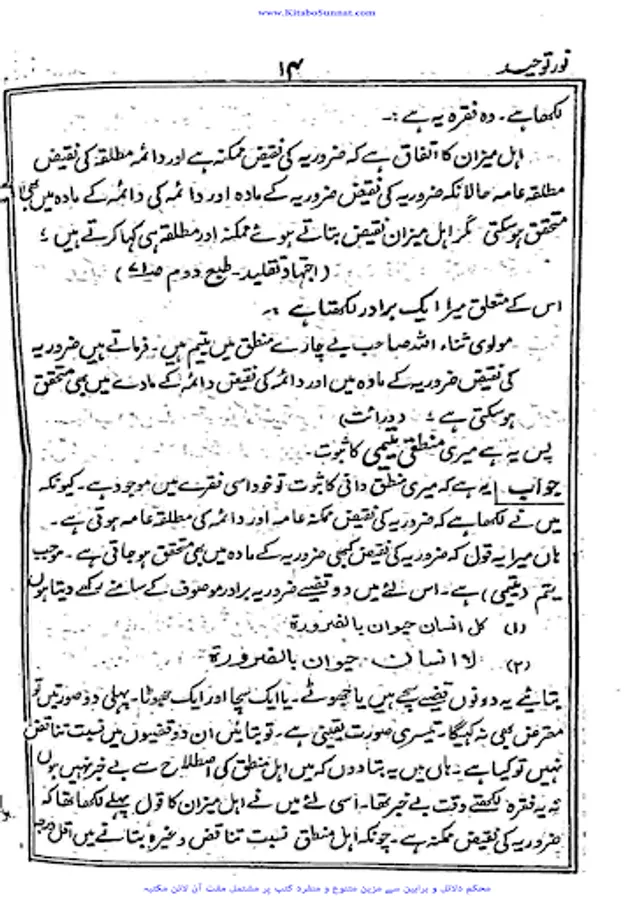 www.KitaboSunnat.com
نور توحید
۱۴
لکھا ہے۔ وہ فقرہ یہ ہے :۔
اہل میزان کا اتفاق ہے کہ ضروریہ کی نقیض ممکنہ ہے اور دائمہ مطلقہ کی نقیض
مطلقہ عامہ حالانکہ ضروریہ کی نقیض ضروریہ کے مادہ اور دائمہ کی دائمہ کے مادہ میں بھی
متحقق ہو سکتی مگر اہل میزان نقیض بتاتے ہوئے ممکنہ اور مطلقہ ہی کہا کرتے ہیں ؛
(اجتہاد تقلید۔ طبع دوم
اس کے متعلق میرا ایک برادر لکھتا ہے :۔
مولوی ثناء اللہ صاحب بے چارے منطق میں یتیم ہیں۔ فرماتے ہیں ضروریہ
کی نقیض ضروریہ کے مادہ میں اور دائمہ کی نقیض دائمہ کے مادے میں بھی متحقق
ہو سکتی ہے ؛
پس یہ ہے میری منطقی یتیمی کا ثبوت۔
جواب یہ ہے کہ میری منطق دانی کا ثبوت تو خود اسی فقرے میں موجود ہے۔ کیونکہ
میں نے لکھا ہے کہ ضروریہ کی نقیض ممکنہ عامہ اور دائمہ کی مطلقہ عامہ ہوتی ہے۔
ہاں میرا یہ قول کہ ضروریہ کی نقیض کبھی ضروریہ کے مادہ میں بھی متحقق ہو جاتی ہے۔ موجب
یتم (یتیمی) ہے۔ اس لئے میں دو قضیے ضروریہ برادر موصوف کے سامنے رکھے دیتا ہوں
(۱) کل انسان حیوان بالضرورة
(۲) لا انسان حیوان بالضرورة
بتائیے یہ دونوں قضیے سچے ہیں یا جھوٹے۔ یا ایک سچا اور ایک جھوٹا۔ پہلی دو صورتیں تو
معترض بھی نہ کہیگا۔ تیسری صورت یقینی ہے۔ تو بتائیں ان دو قضیوں میں نسبت تناقض
نہیں تو کیا ہے۔ ہاں میں یہ بتا دوں کہ میں اہل منطق کی اصطلاح سے بے خبر نہیں ہوں
نہ یہ فقرہ لکھتے وقت بے خبر تھا۔ اسی لئے میں نے اہل میزان کا قول پہلے لکھا تھا کہ
ضروریہ کی نقیض ممکنہ ہے۔ چونکہ اہل منطق نسبت تناقض وغیرہ بتانے میں اقل درجہ
محکم دلائل و براہین سے مزین متنوع و منفرد کتب پر مشتمل مفت آن لائن مکتبہ